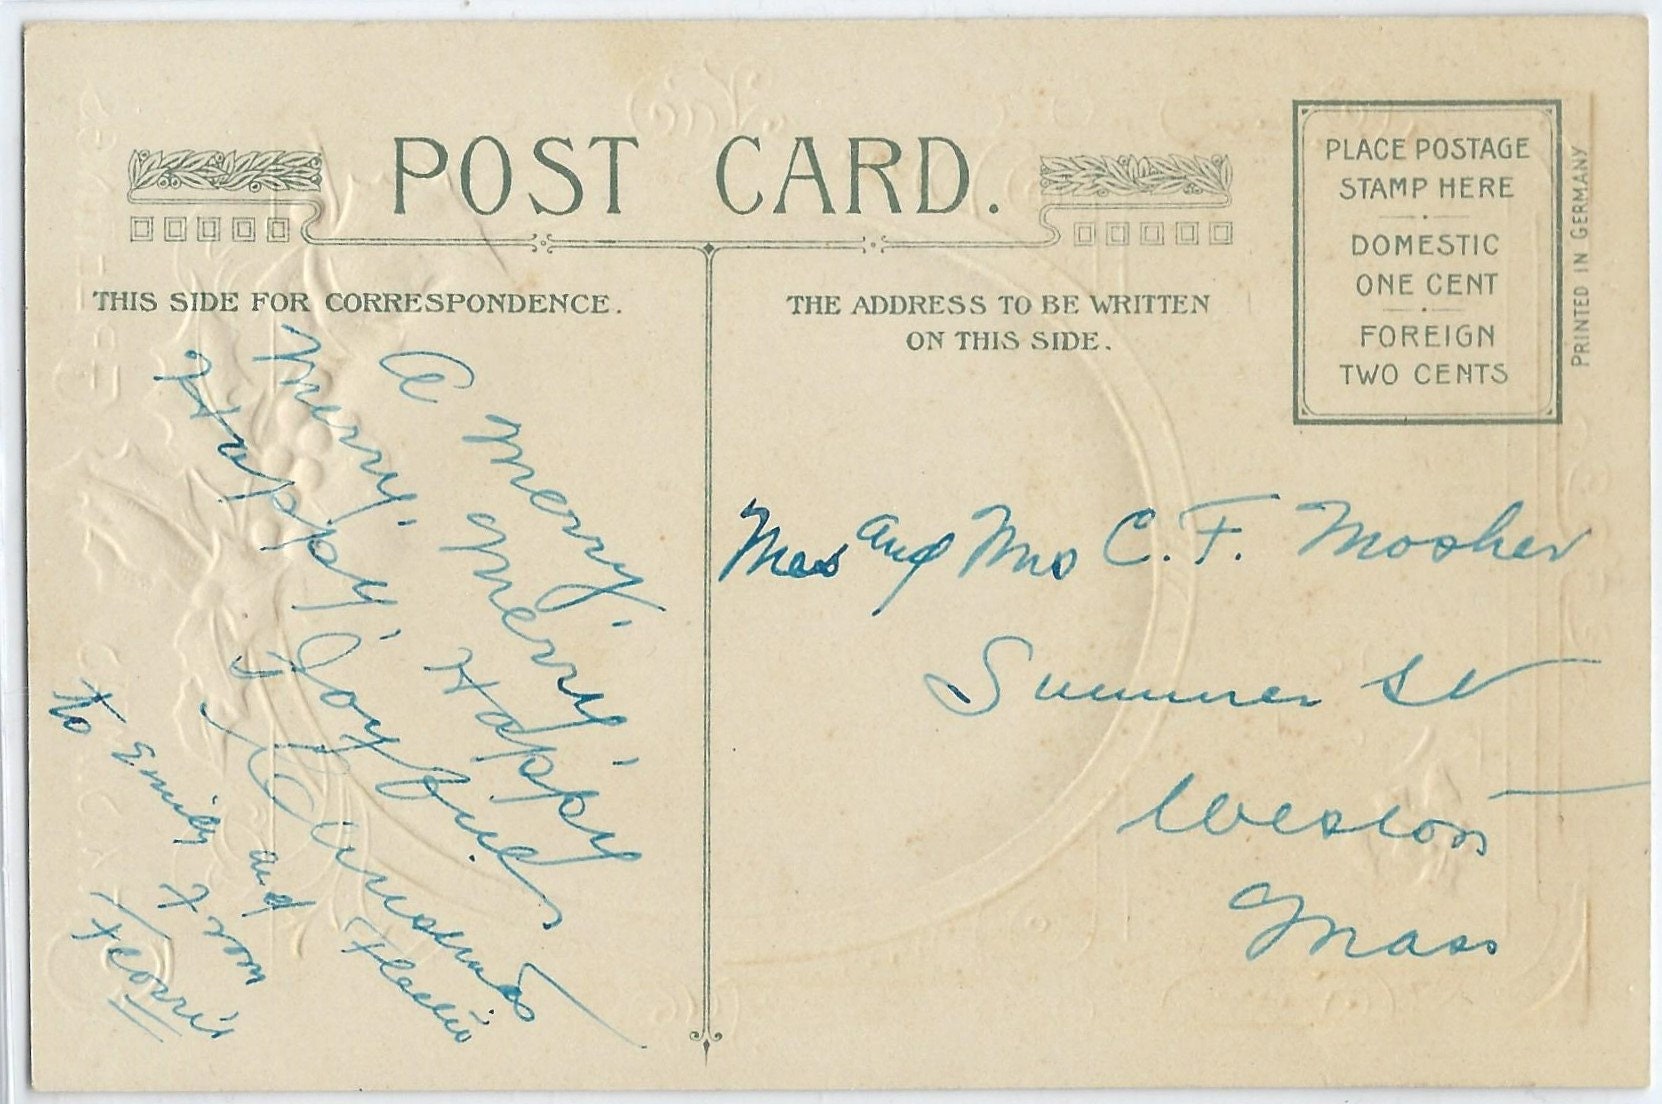 POST CARD.
THIS SIDE FOR CORRESPONDENCE.
THE ADDRESS TO BE WRITTEN
ON THIS SIDE.
PLACE POSTAGE
STAMP HERE
DOMESTIC
ONE CENT
FOREIGN
TWO CENTS
PRINTED IN GERMANY
A Merry,
Merry, Merry,
Happy, Happy
Joyful
Christmas
to Emily and
From
and Mrs C. F. Mosher
Summer St
Weston
Mass